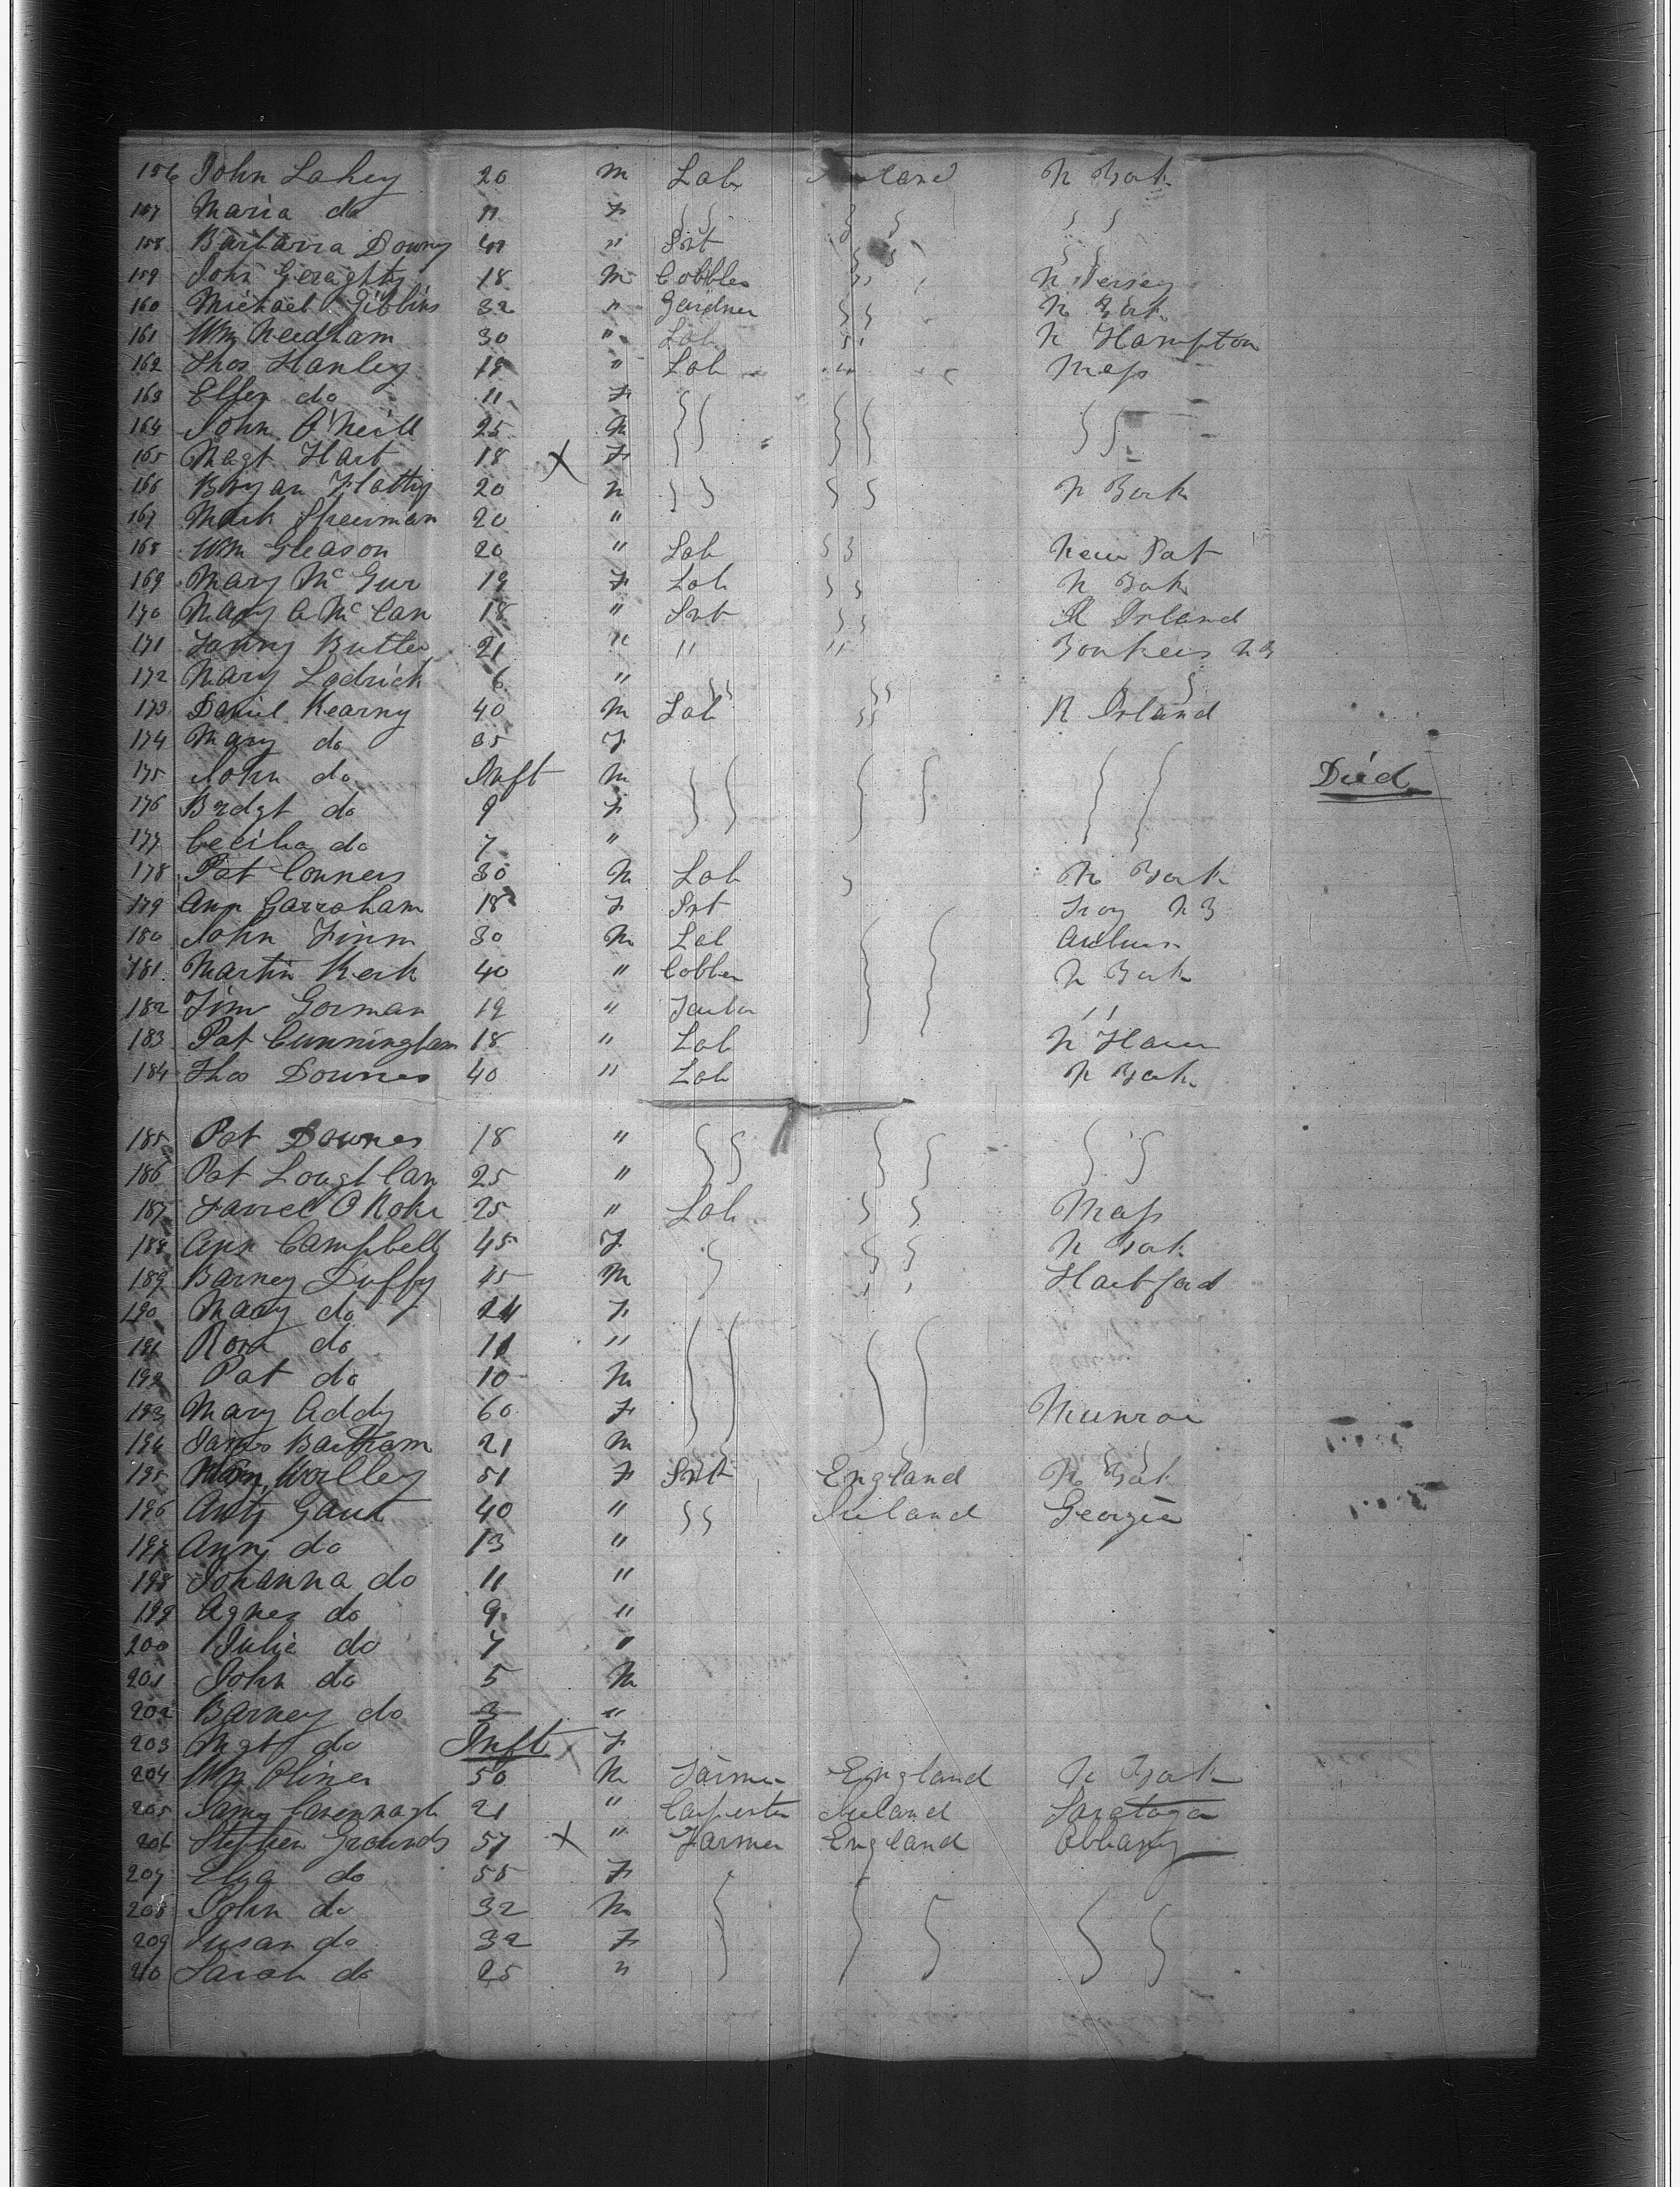 156 John Lahey 20 M Lab N York
157 Maria do 11 F
158 Barbarra Downy " Svt
159 John Geraghty 18 M Cobbler N Jersey
160 Michael Giblins 32 " Gardner N York
161 Wm Needham 30 " Lab N Hampton
162 Thos Hanley 18 " Lab " Mass
163 Ellen do 11 F
164 John O'Neill 25 M
165 Magt Hart 18 X F
166 Bryan Flattry 20 M N York
167 Mark 20 "
168 Wm Gleason 20 " Lab New Pat
169 Mary McGur 19 F Lab N York
170 Mary A McCan 18 " Svt R Island
171 Fanny Butler 21 " " " Yonkers NY
172 Mary Lodrick 6 "
173 Daniel Kearny 40 M Lab R Island
174 Mary do 35 F
175 John do Inft M Died
176 Brdgt do 9 F
177 Cecilia do 7 "
178 Pat Conners 30 M Lab N York
179 Ann Garraham 18 F Svt Troy NY
180 John Finn 30 M Lab Auburn
181 Martin Kerk 40 " Cobbler N York
182 Tim Gorman 19 " Tailor "
183 Pat Cunningham 18 " Lab N Haven
184 Thos Downes 40 " Lab N York
185 Pat Downes 18 "
186 Pat Loughlan 25 "
187 Farrel O Roke 25 " Lab Mass
188 Ann Campbell 45 F N York
189 Barney Duffy 45 M Hartford
190 Mary do F
191 Rosa do 11 "
192 Pat do 10 M
193 Mary Addy 60 F Munroe
194 James Bartham 21 M
195 Wolley 51 F Svt England N York
196 Gaut 40 " Ireland Georgia
197 Ann do 13 "
198 Johanna do 11 "
199 Agnes do 9 "
200 Julie do 7 "
201 John do 5 M
202 Barney do 3 "
203 Mgt do Inft F
204 Wm Oliner 50 M Farmer England N York
205 Jamy Cavennagh 21 " Carpenter Ireland Saratoga
206 Stephen Grounds 57 X " Farmer England Albany
207 Eliza do 55 F
208 John do 32 M
209 Susan do 32 F
210 Sarah do 25 "